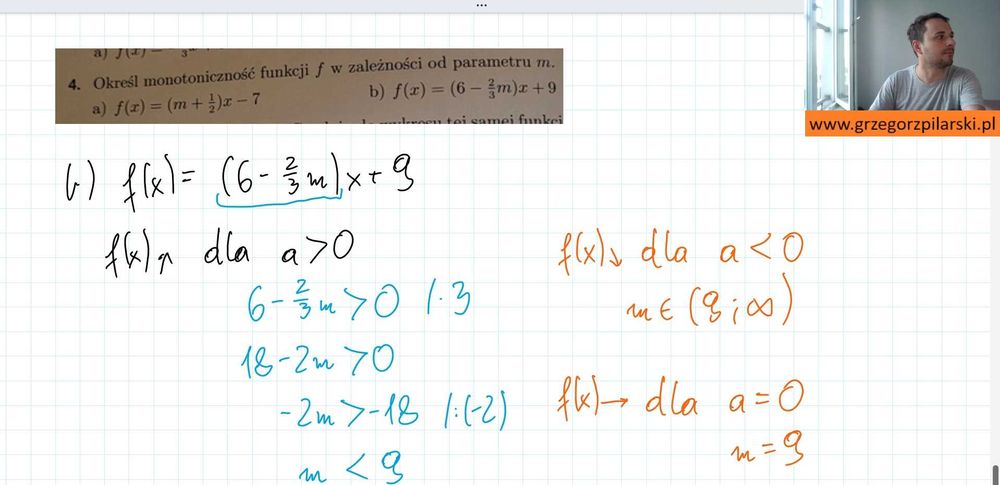 ...
a) f(x) =
4. Określ monotoniczność funkcji f w zależności od parametru m.
a) f(x) = (m + 1/2)x − 7
b) f(x) = (6 − 2/3m)x + 9
wykresu tej samej funkcj
www.grzegorzpilarski.pl
b) f(x) = (6 − 2/3 m)x + 9
f(x)↗ dla a > 0
6 − 2/3 m > 0 /·3
18 − 2m > 0
−2m > −18 /:(−2)
m < 9
f(x)↘ dla a < 0
m ∈ (9 ; ∞)
f(x)→ dla a = 0
m = 9